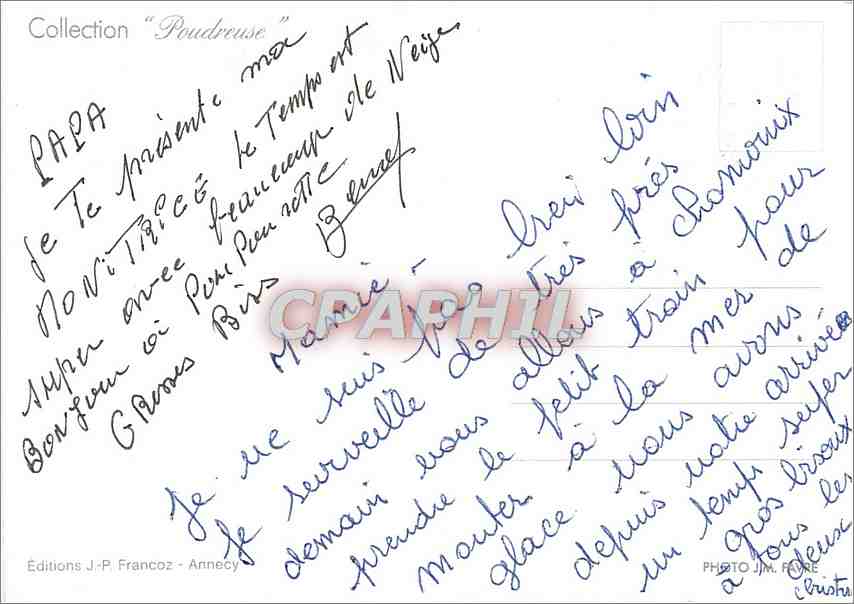 Collection "Poudreuse"
PAPA
Je Te présente ma
MONiTRiCE le Temps est
super avec beaucoup de Neige
BONJOUR à PomPonette
GROSSES Bises
CPAPHIL
Mamie -
Je ne suis pas bien loin
Je surveille de très près
demain nous allons à Chamonix
prendre le petit train pour
monter à la mer de
glace nous avons
depuis notre arrivée
un temps super
gros bisoux
à tous les
deux
Éditions J.-P. Francoz - Annecy
PHOTO J.M. FAVRE